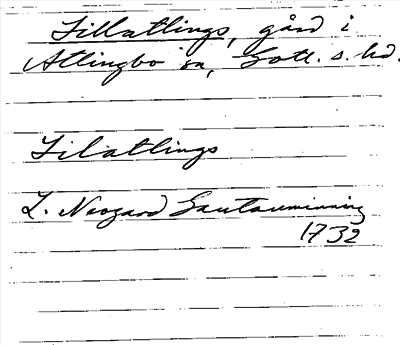 Lillatlings, gård i
Atlingbo sn, Gotl. s. hd.
Lilatlings
L. Neogard Gautauminning
1732